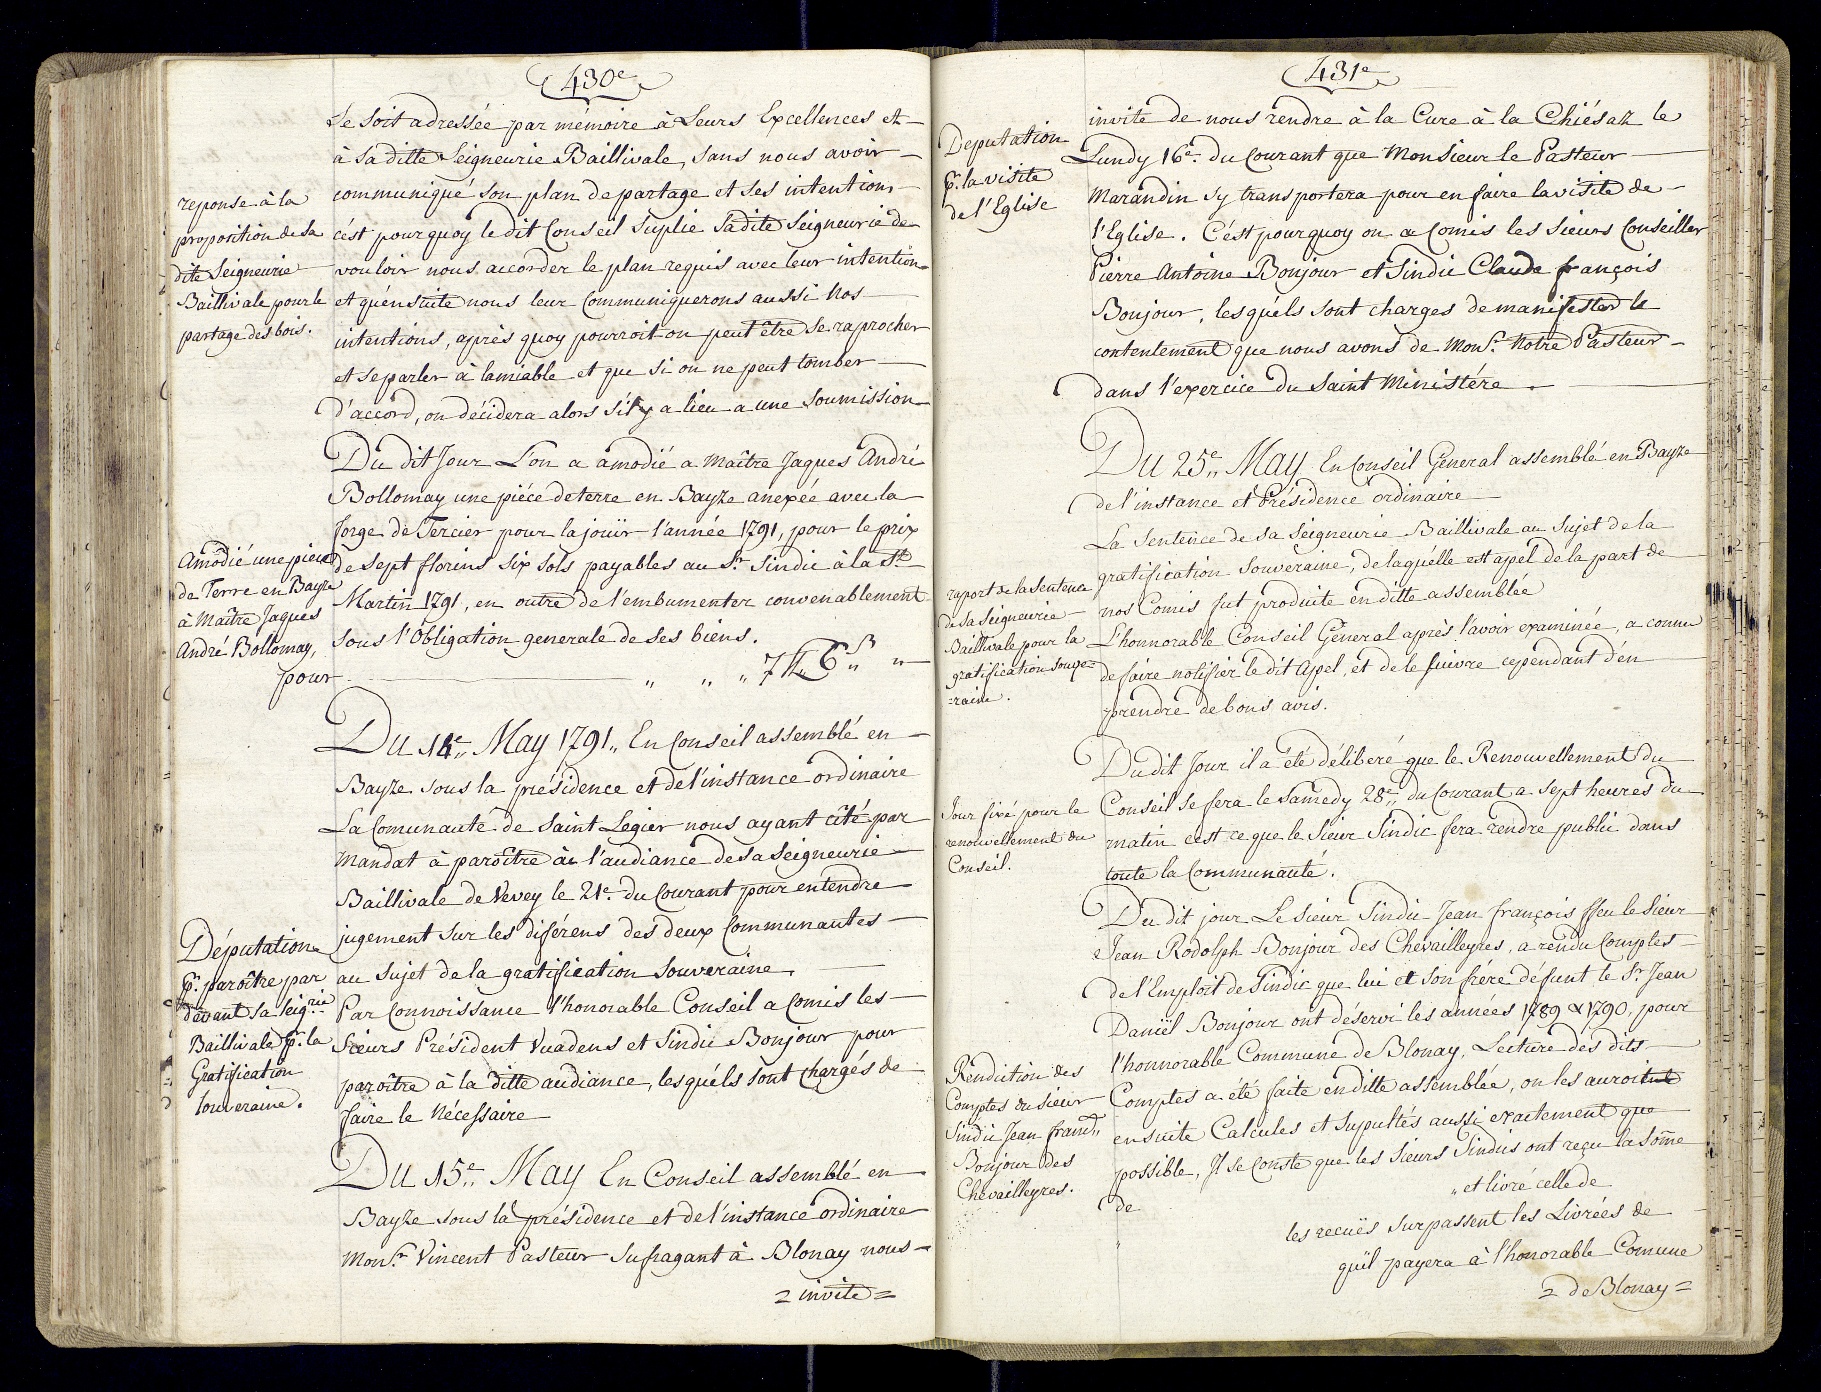 430e
Se soit adressée par mémoire à Leurs Excellences et
à Sa ditte Seigneurie Baillivale, sans nous avoir
communiqué son plan de partage et ses intentions
reponse à la
proposition de sa
dite Seigneurie
Baillivale pour le
partage des bois.
c'ést pourquoy le dit Conseil suplie Sa dite Seigneurie de
vouloir nous accorder le plan requis avec leur intention
et qu'ensuite nous leur Communiquerons aussi Nos
intentions, après quoy pourroit-on peut être se raprocher
et se parler à lamiable et que si on ne peut tomber
d'accord, on décidera alors s'il y a lieu a une Soumission
Du dit Jour L'on a amodié a Maître Jaques André
Bollomay une piéce de terre en Bayze anexée avec la
forge de Tercier pour la joüir l'année 1791, pour le prix
Amodié une piece
de Terre en Bayze
à Maître Jaques
André Bollomay,
pour
de sept florins six sols payables au Sr. Sindic à la St.
Martin 1791, en outre de l'embumenter convenablement
sous l'Obligation generale de ses biens.
" " " 7 fl. 6 s. "
Du 14e. May 1791,, En Conseil assemblé en
Bayze sous la présidence et de l'instance ordinaire
La Comunauté de Saint Legier nous ayant cité par
Mandat à paroître à l'audiance de Sa Seigneurie
Baillivale de Vevey le 21e. du Courant pour entendre
jugement sur les diférens des deux Communautes
Députation
pr. paroître par
devant sa Seigrie
Baillivale pr. la
Gratification
Souveraine.
au sujet de la gratification Souveraine.
Par Connoissance l'honorable Conseil a Comis les
Sieurs Président Vuadens et Sindic Bonjour pour
paroître à la ditte audiance, lesquéls sont chargés de
faire le Nécessaire
Du 15e. May En Conseil assemblé en
Bayze sous la présidence et de l'instance ordinaire
Monsr. Vincent Pasteur Sufragant à Blonay nous
= invite =
431e
invite de nous rendre à la Cure à la Chiésaz le
Deputation
pr. la visite
de l'Eglise
Lundy 16e. du Courant que Monsieur le Pasteur
Marandin s'y transportera pour en faire la visite de
l'Eglise. C'ést pourquoy on a Comis les Sieurs Conseiller
Pierre Antoine Bonjour et Sindic Claude françois
Bonjour, lesquéls sont charges de manifester le
contentement que nous avons de Monsr. Notre Pasteur
dans l'exercice du Saint Ministére.
Du 25e,, May En Conseil General assemblé en Bayze
de l'instance et Présidence ordinaire
La Sentence de sa Seigneurie Baillivale au Sujet de la
raport de la Sentence
de sa Seigneurie
Baillivale pour la
gratification Souve=
=raine.
gratification Souveraine, de laquélle est apel de la part de
nos Comis fut produite en ditte assemblée
L'honnorable Conseil Général après l'avoir examinée, a connu
de faire notifier le dit Apel, et de le suivre cependant d'en
prendre de bons avis.
Du dit Jour il a été délibéré que le Renouvellement du
Jour fixé pour le
renouvellement du
Conseil.
Conseil se fera le Samedy 28e. du Courant a sept heures du
matin c'est ce que le Sieur Sindic fera rendre public dans
toute la Communauté.
Du dit jour Le Sieur Sindic Jean françois ffeu le Sieur
Jean Rodolph Bonjour des Chevailleyres, a rendu Comptes
de l'Emploit de Sindic que lui et son frére défunt le Sr. Jean
Daniël Bonjour ont déservi les années 1789 & 1790, pour
Rendiction des
Comptes du Sieur
Sindic Jean franç.
Bonjour des
Chevailleyres.
l'honnorable Commune de Blonay, Lecture des dits
Comptes a été faite en ditte assemblée, on les auroit
ensuite Calcules et Suputtés aussi exactement que
possible, Il se Conste que les Sieurs Sindics ont reçu la sôme
de
" et livré célle de
les recuës surpassent les Livrées de
qu'il payera à l'honorable Comune
= de Blonay =